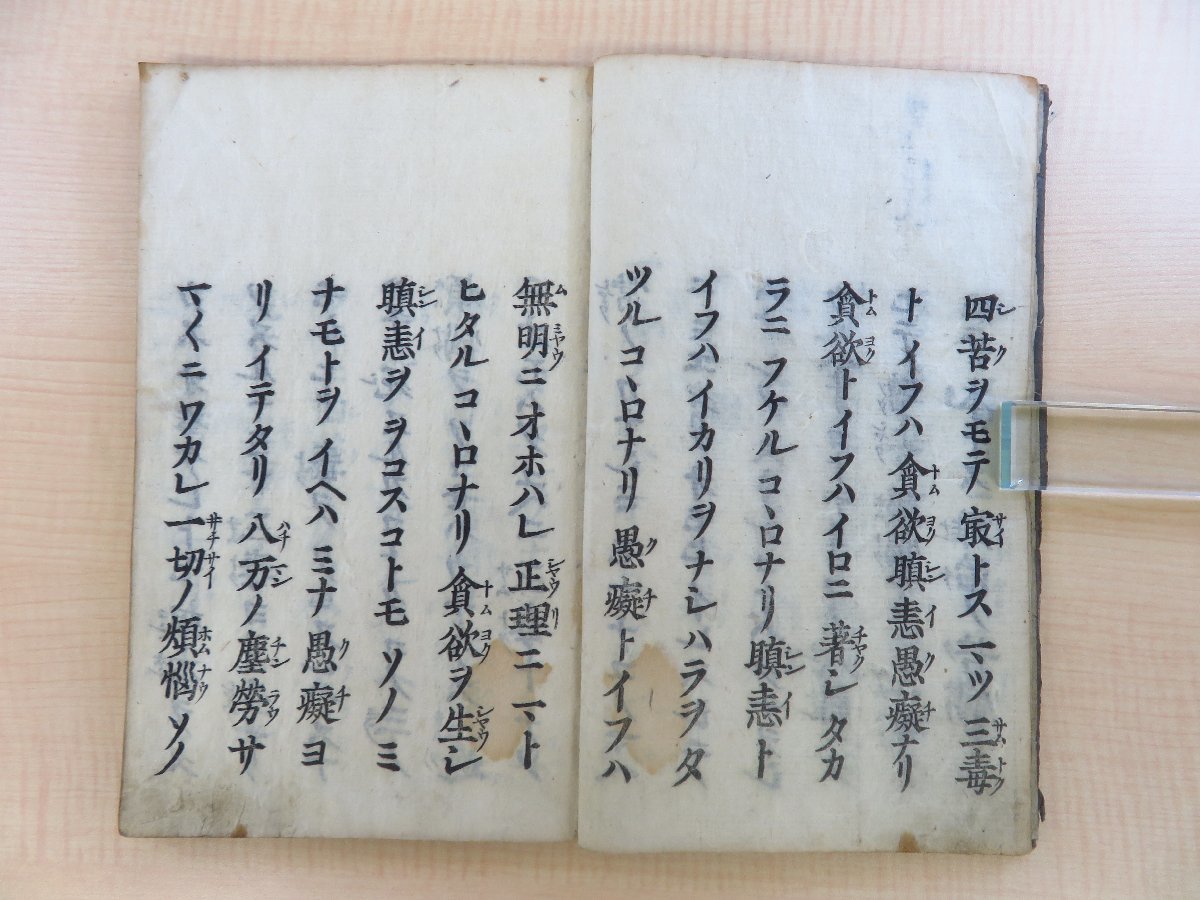 四苦ヲモテ㝡トスマツ三毒
トイフハ貪欲瞋恚愚癡ナリ
貪欲トイフハイロニ著シタカ
ラニフケルコヽロナリ瞋恚ト
イフハイカリヲナシハラヲタ
ツルコヽロナリ愚癡トイフハ
無明ニオホハレ正理ニマト
ヒタルコヽロナリ貪欲ヲ生シ
瞋恚ヲヲコスコトモソノミ
ナモトヲイヘハミナ愚癡ヨ
リイテタリ八万ノ塵勞サ
マ〱ニワカレ一切ノ煩惱ソノ